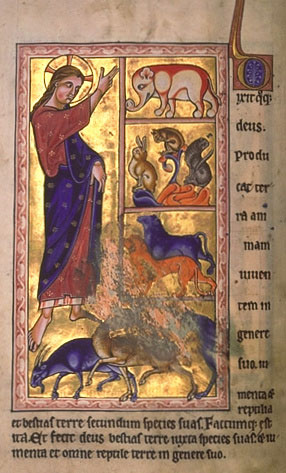 Dixit q̣q;
deus.
Produ
cat ter
ra ani
mam
viven
tem in
genere
suo. iu
menta &
reptilia
et bestias terre secundum species suas. Factumq; est
ita. Et fecit deus bestias terre iuxta species suas. & iu
menta et omne reptile terre in genere suo.